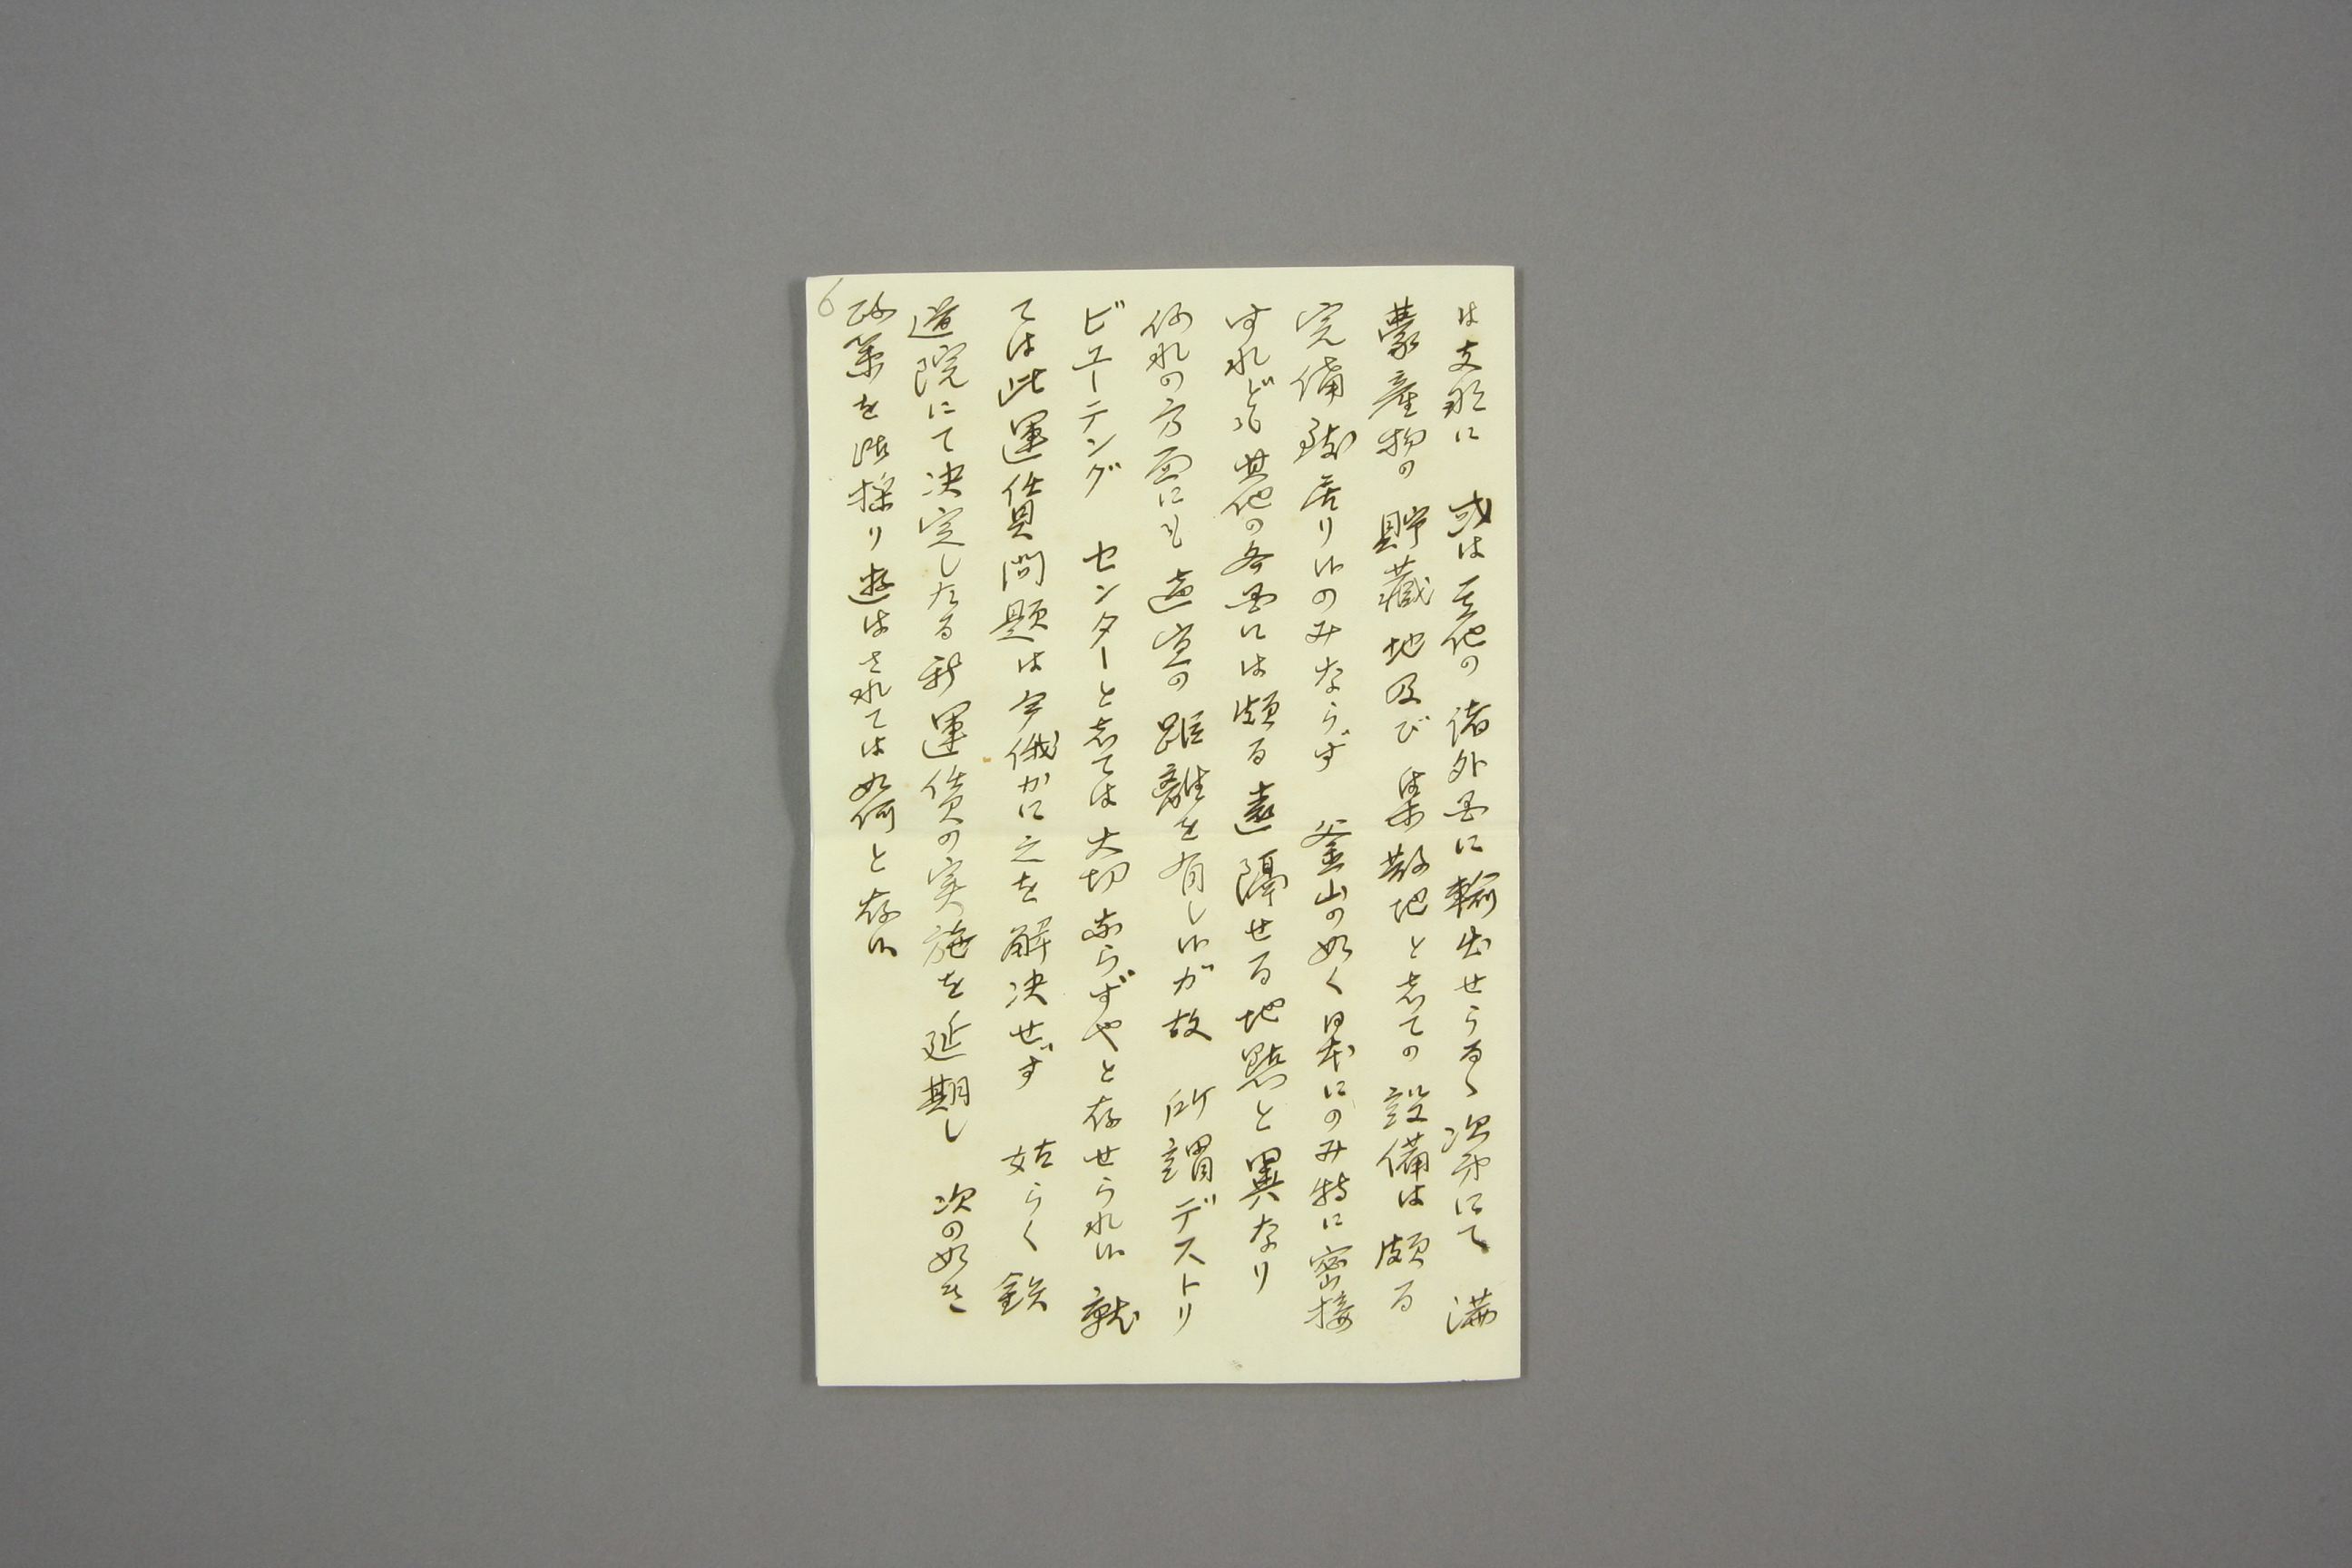 は支那に 或は其他の諸外国に輸出せらるゝ次第にて 満
蒙産物の 貯蔵地及び 集散地と志ての 設備は頗る
完備致居り候のみならず 釜山の如く日本にのみ特に密接
すれども 其他の各国には頗る遠隔せる地點と異なり
何れの方面にも 適宜の 距離を有し候が故 所謂デストリ
ビユーテング センターと志ては 大切ならずやと存せられ候 就
ては此運賃問題は今俄かに之を解決せず 姑らく 鉄
道院にて決定したる新運賃の実施を延期し 次の如き
政策を御採り遊はされては如何と存候
6